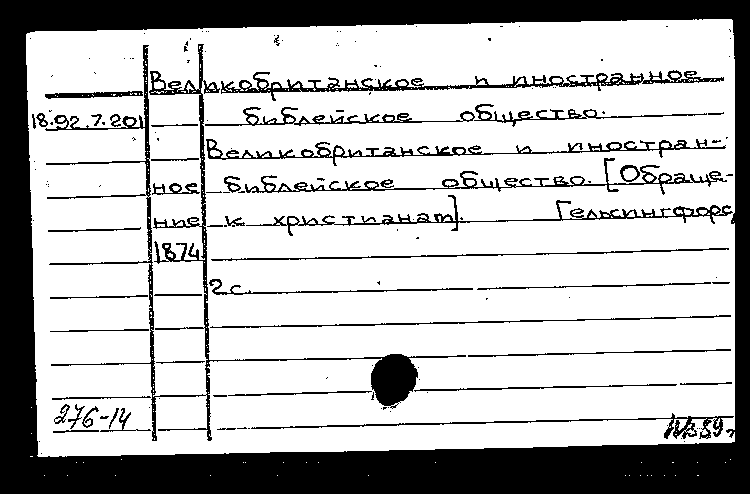 Великобританское и иностранное
18.92.7.201 библейское общество.
Великобританское и иностран-
ное библейское общество. [Обраще-
ние к христианам]. Гельсингфорс,
1874
2 с.
276-14